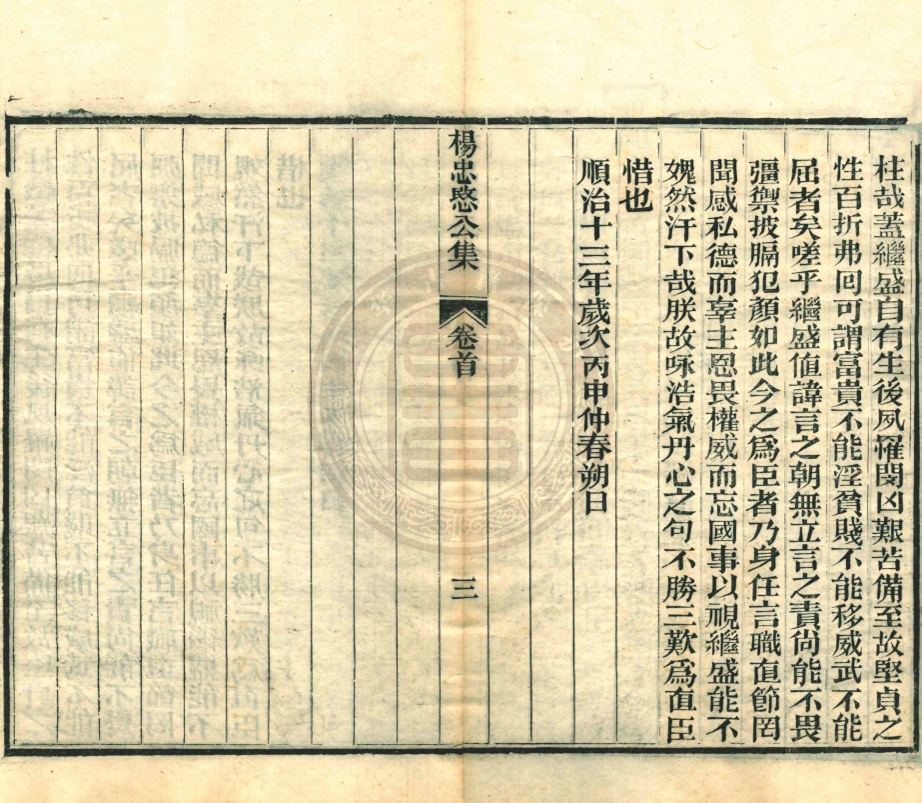 柱哉蓋繼盛自有生後夙罹閔凶艱苦備至故堅貞之
性百折弗回可謂富貴不能淫貧賤不能移威武不能
屈者矣嗟乎繼盛值諱言之朝無立言之責尚能不畏
彊禦披膈犯顏如此今之爲臣者乃身任言職直節罔
聞感私德而辜主恩畏權威而忘國事以視繼盛能不
媿然汗下哉朕故咏浩氣丹心之句不勝三歎爲直臣
惜也
順治十三年歲次丙申仲春朔日
楊忠愍公集
卷首
三